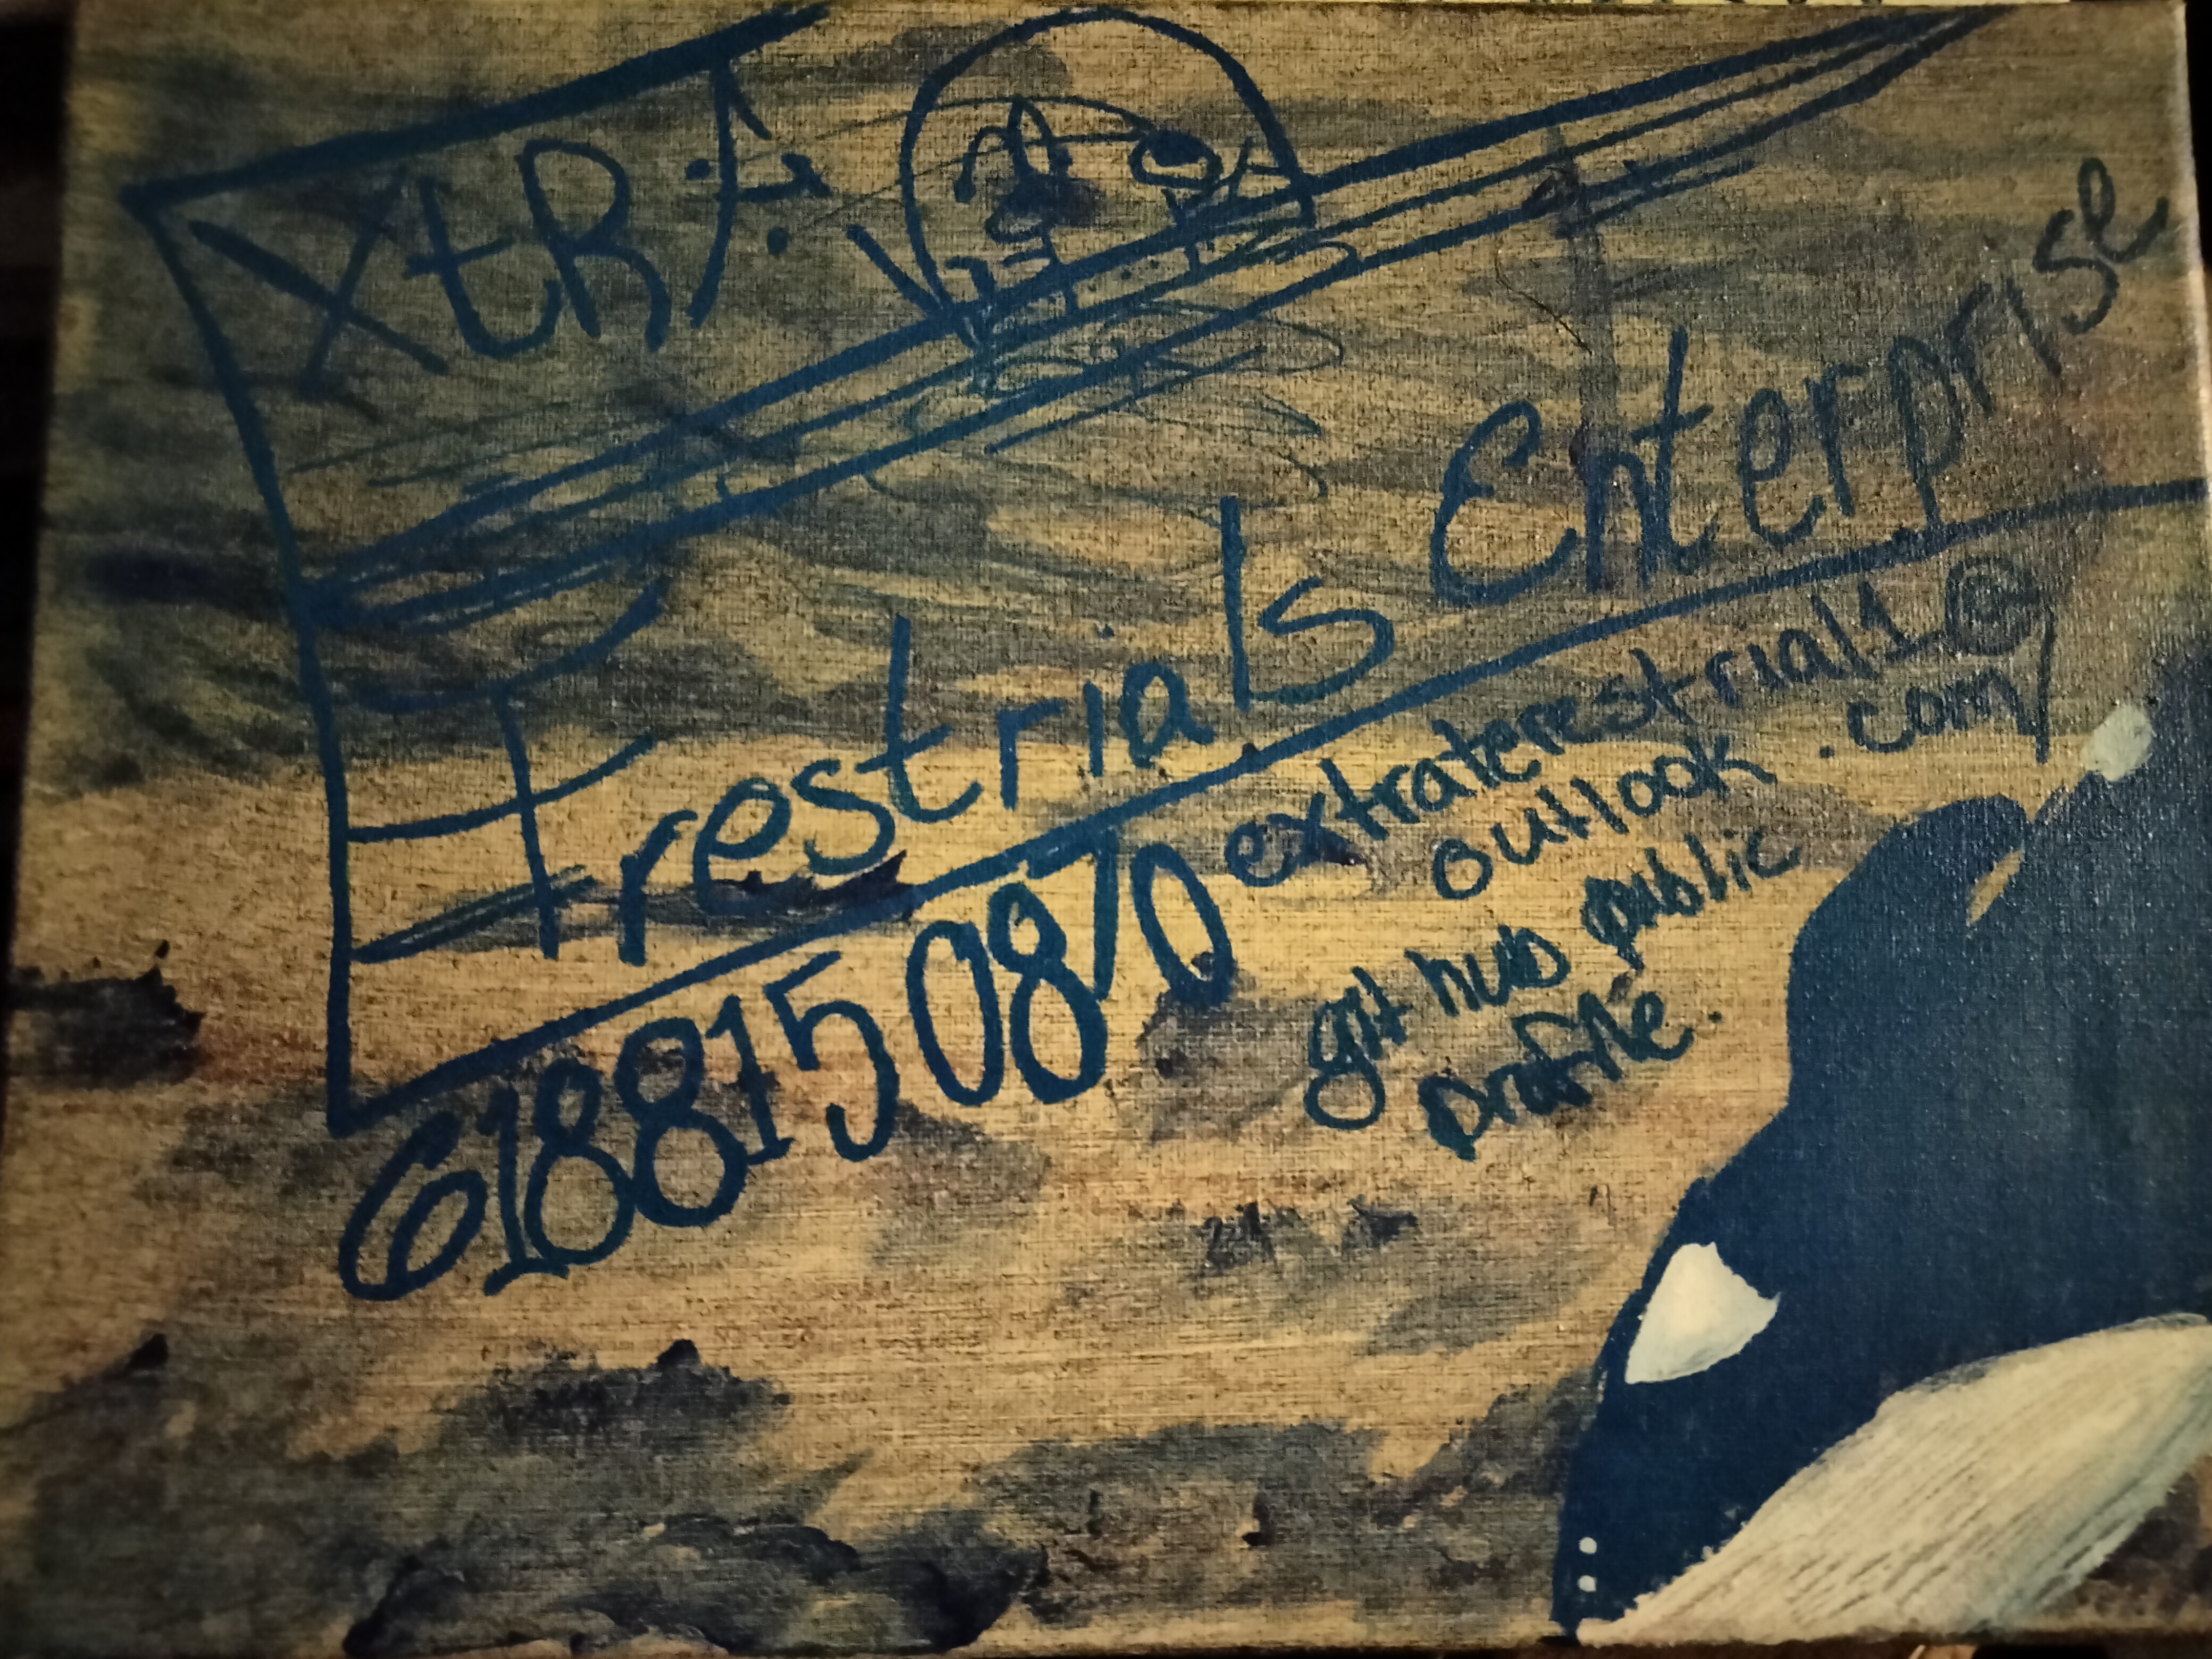 XtRA
Erestrials Enterprise
6188150870
extraterestrial1@
outlook .com/
git hub public
profile.